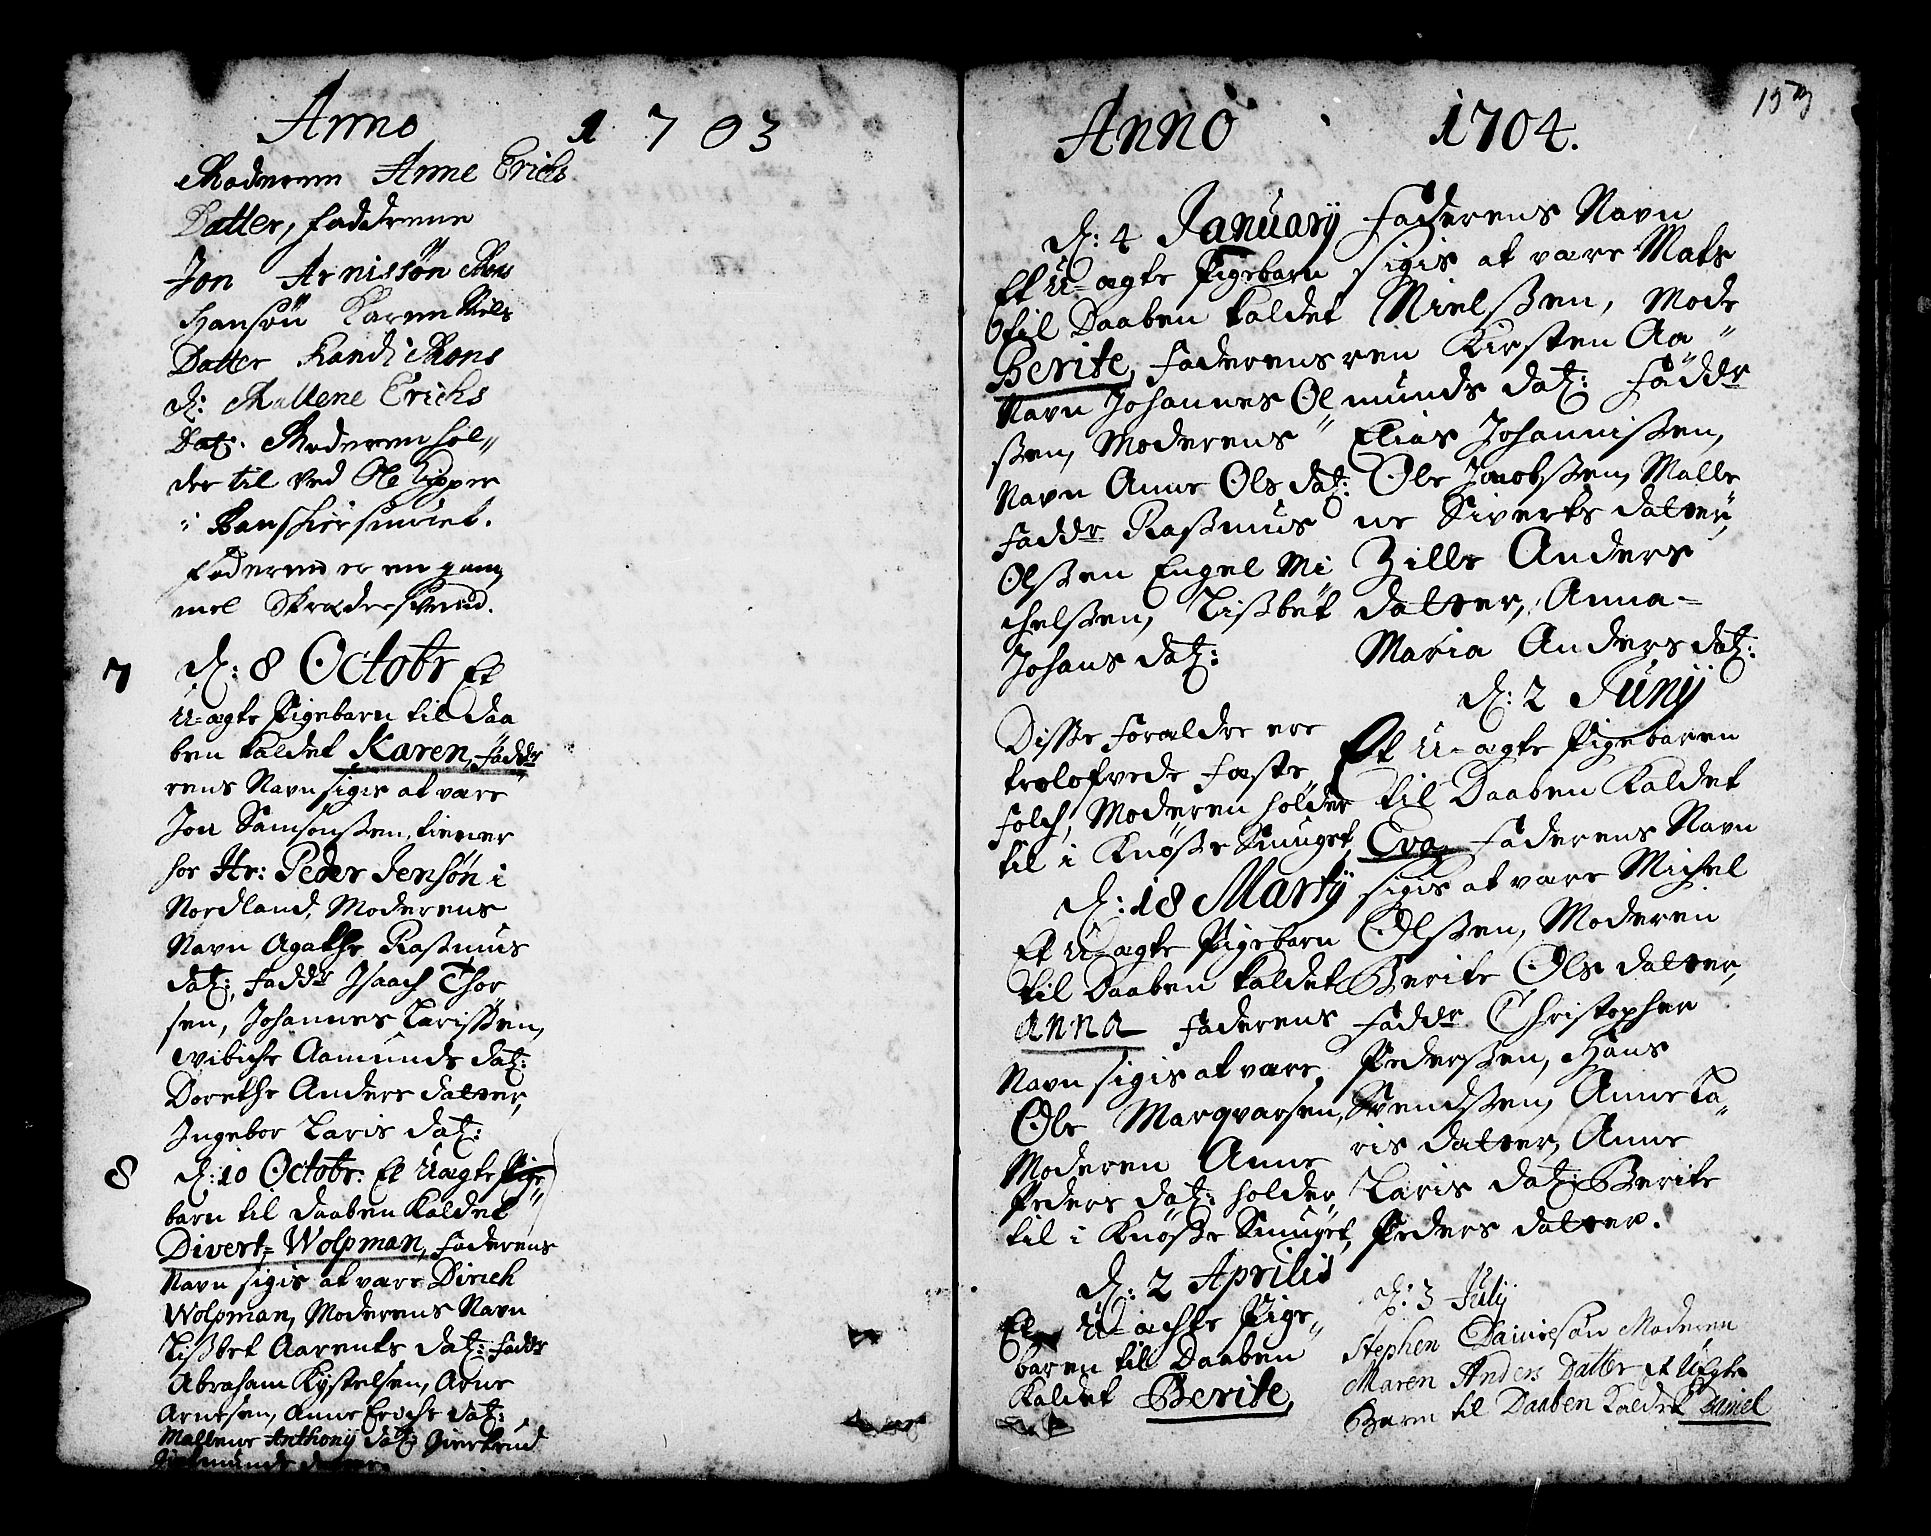 Anno 1703
Moderen Anne Erichs
Datter, fadderne
Jon Arnissøn Mons
Hansøn Karen Niels
Datter Randi Mons
d: Mallene Erichs
Dat: Moderen hol„
der til ved Ole
i
faderen er en gam
mel Skredersvend.
7 d: 8 Octobr Et
U-ægte Pigebarn til daa
ben kaldet Karen, fadde
rens Navn sigis at være
Jon Samsonssen, tiener
hos Hr: Peder Jensøn i
Nordland, Moderens
Navn Agathe Rasmus
dat:, faddr Isaach Thor
sen, Johannes Larissen,
Wibiche Aamunds dat:
Dorethe Anders datter,
Ingebor Laris dat:
8 d: 10 Octobr: Et Uægte Pige„
barn til daaben Kaldet
Divert=Wolpman, faderens
Navn sigis at være Dirich
Wolpman, Moderens Navn
Lisbet Aarents dat: faddr
Abraham Kystelsen, Arne
Arnesen, Anne Erichs dat:
Mallene Anthony dat: Giertrud
datter.
Anno 1704.
153
d: 4 January
Et U=ægte Pigebarn
til Daaben kaldet
Berite, faderens
Navn Johannes Ol„
ssen, Moderens
Navn Anne Ols dat:
faddr Rasmus
Olssen Engel Mi
chelssen, Lisbet
Johans dat:
Disse forældre ere
trolofvede faste
folch, Moderen holder
til i Knøsse Smuget,
d: 18 Marty
Et U=ægte Pigebarn
til Daaben kaldet
Anna faderens
Navn sigis at være,
Ole Marqvarsen,
Moderen Anne
Peders dat: holder
til i Knøsse Smuget,
d: 2 Aprilis
Et U=ächte Pige„
baren til Daaben
Kaldet Berite,
faderens Navn
sigis at være Mats
Nielssen, Mode
ren Kirsten Aa„
munds dat: faddr
Elias Johannissen,
Ole Jacobssen, Malle
ne Siverts datter,
Zille Anders
datter, Anna=
Maria Anders dat:
d: 2 Juny
Et U=ægte Pigebaren
til Daaben Kaldet
Eva, faderens Navn
sigis at være Michel
Olssen, Moderen
Berite Ols datter,
faddr Christopher
Pederssen, Hans
Svendssen, Anne La„
ris datter, Anne
Laris dat: Berite
Peders datter.
d: 3 July
Stephen Danielsøn Moderen
Maren Anders Datter et Uægte
Barn til Daaben kaldet Daniel